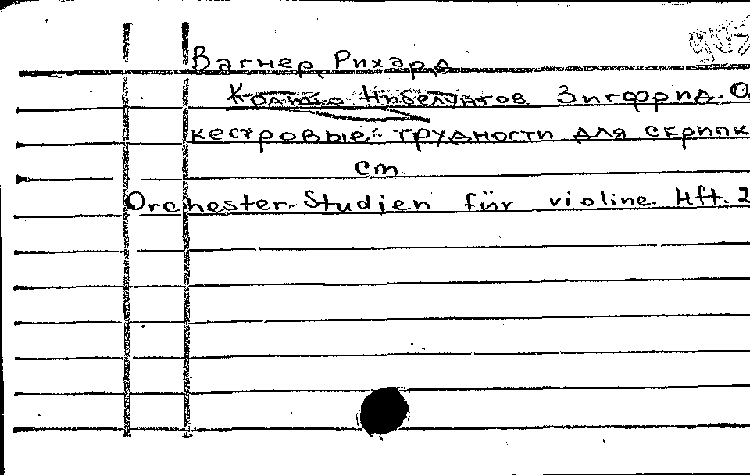 Вагнер, Рихард
Кольцо Нибелунгов Зигфрид. О
кестровые трудности для скрипк
см
Orchester-Studien für violine. Hft. 2